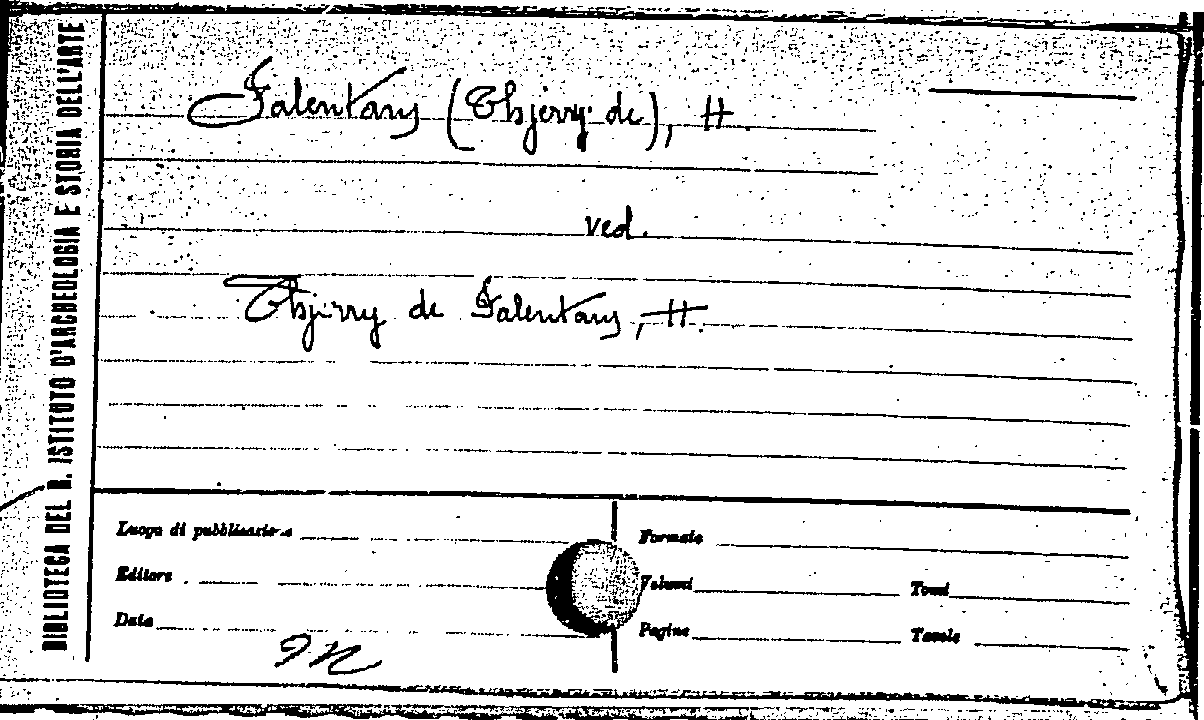 BIBLIOTECA DEL R. ISTITUTO D'ARCHEOLOGIA E STORIA DELL'ARTE
Falentans (Thjerry de), H.
ved.
Thjerry de Falentans, H.
Luogo di pubblicazione
Formato
Editore
Volumi
Tomi
Data
Pagine
Tavole